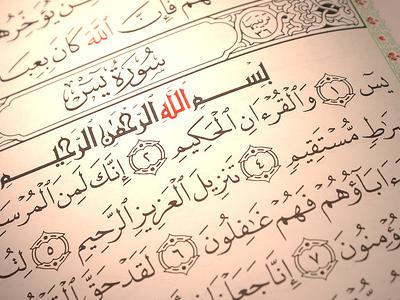 هم فإن
ن يؤخر
الله كان بعبا
سورة يس
بسم الله الرحمن الرحيم
يس ١ والقرءان الحكيم ٢ إنك لمن المرس
صرط مستقيم ٤ تنزيل العزيز الرحيم ٥ لتن
ءاباؤهم فهم غفلون ٦ لقد حق الق
يؤمنون ٧ إنا جعلنا